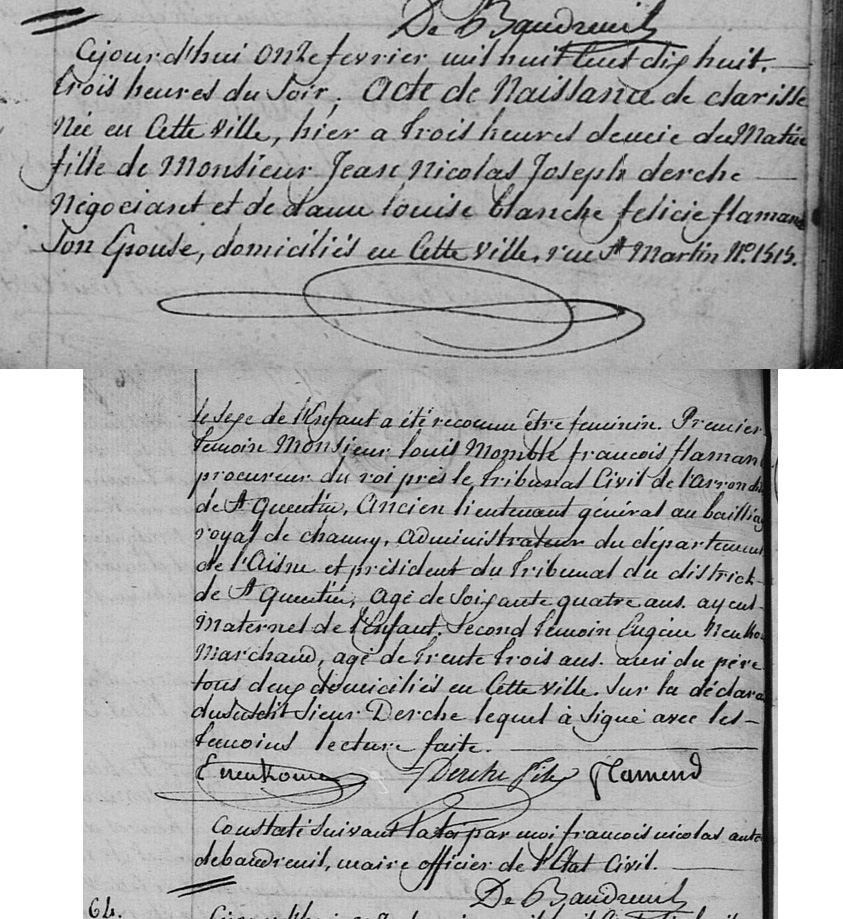 De Baudreuil
Cejourd'hui onze fevrier mil huit cent dix huit.
trois heures du Soir. Acte de Naissance de clarisse
Née en Cette Ville, hier a trois heures demie du Matin
fille de Monsieur Jean Nicolas Joseph derche
Négociant et de dame louise blanche felicie flamand
Son Epouse, domiciliés en Cette Ville, rue St Martin No. 1515.
le sexe de l'Enfant a été reconnu être feminin. Premier
temoin Monsieur louis Momble francois flaman
procureur du roi près le tribunal Civil de l'arrondis
de St Quentin, Ancien lieutenant général au bailliag
royal de chauny, administrateur du département
de l'Aisne et président du tribunal du district
de St Quentin, agé de Soixante quatre ans. ayeul
Maternel de l'Enfant. Second temoin Eugène Neukom
Marchand, agé de trente trois ans. ami du père
tous deux domiciliés en Cette ville. Sur la déclara
dususdit Sieur Derche lequel à Signé avec les
temoins lecture faite.
E neukome Derche Fils flamend
Constaté Suivant la loi par moi francois nicolas anto
debaudreuil, maire officier de l'Etat Civil.
De Baudreuil
64.